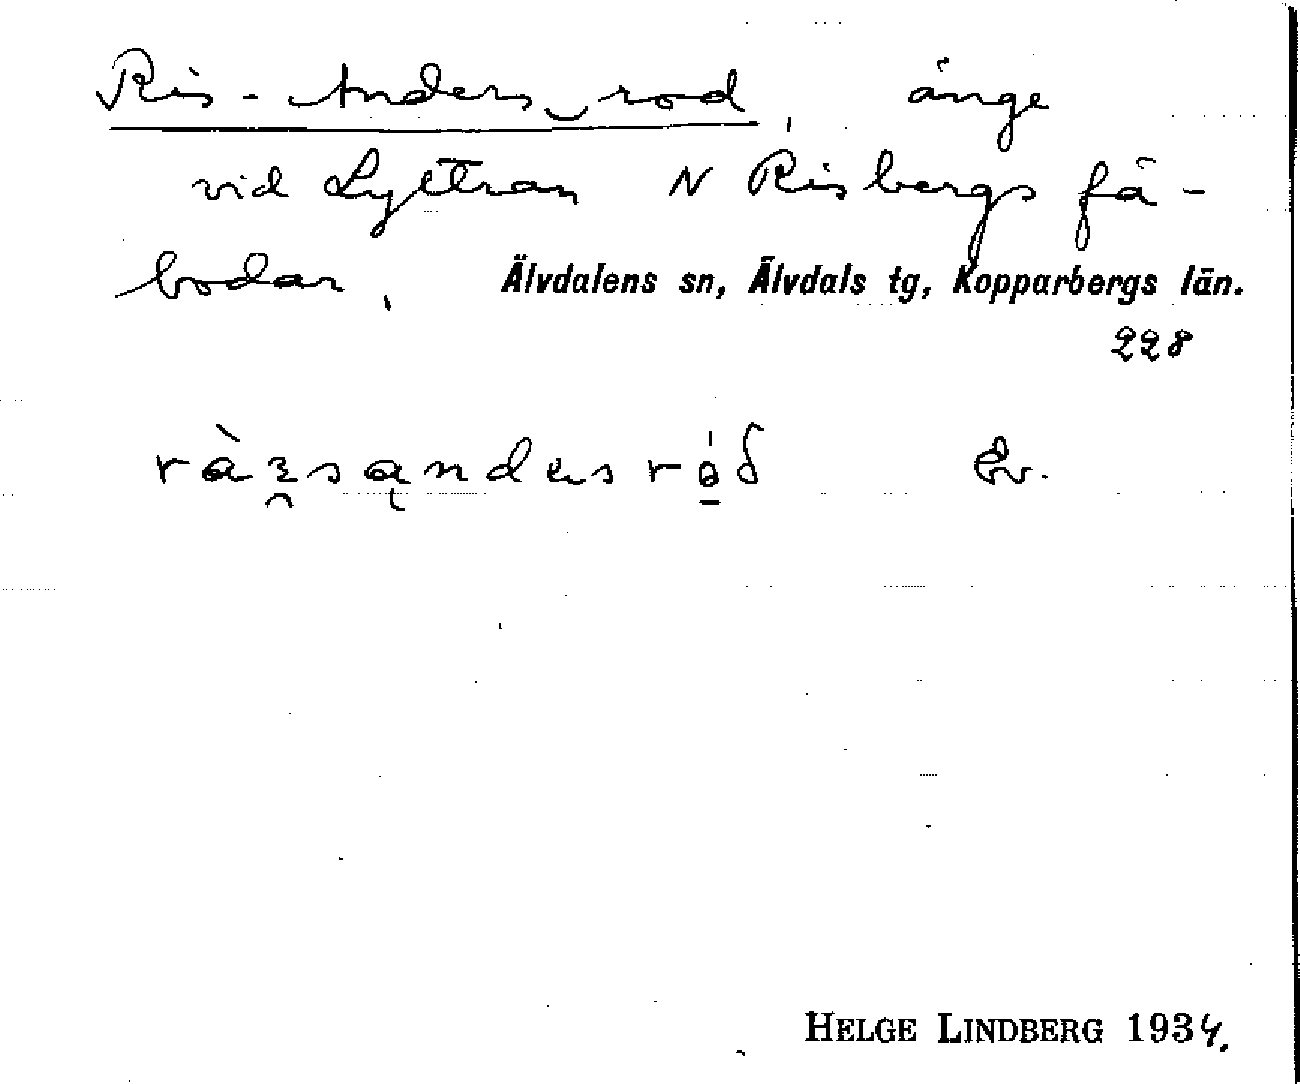 Ris-Anders‿rod, änge
vid Lyttran N Risbergs fä-
bodar.
Älvdalens sn, Älvdals tg, Kopparbergs län.
228
ràɿ̯sąndersró̠ð Ev.
HELGE LINDBERG 1934.